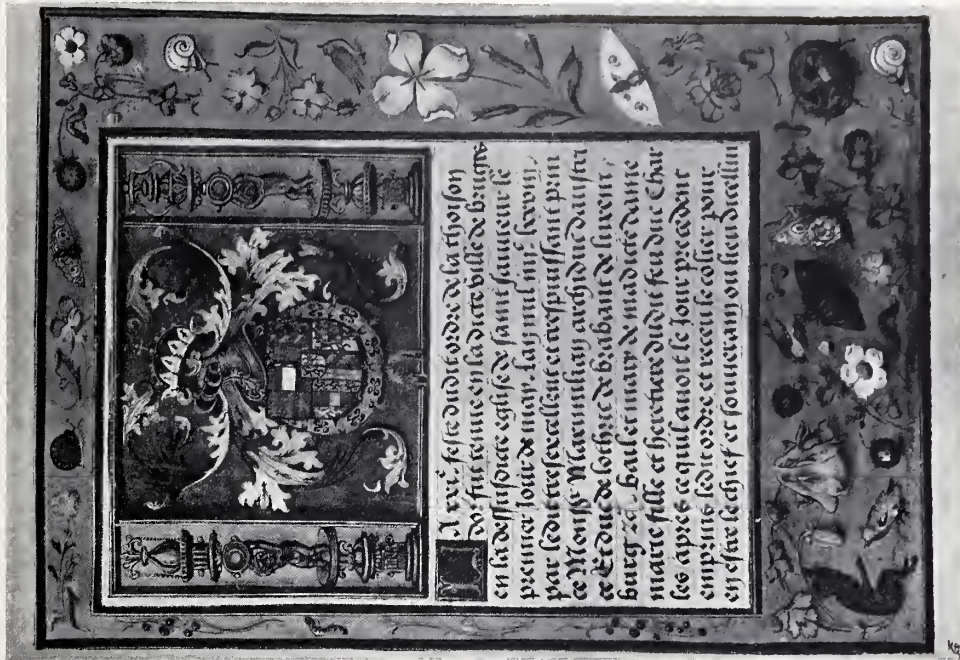 LA xxi. feste dudit ordre de la thoison
dor fut tenue en ladicte ville de bruges
en la dessusdicte eglise de saint sauueur le
premier Jour de may. Lan mil iiijc lxxviij.
par ledit tresexcellent et trespuissant prin
ce Monsr Maximilian archiduc daustri
ce Et duc de lothric de brabant de
burg &c. bail et mary de madicte dame
marie fille et heritiere dudit feu duc Char
les apres ce quil auoit le Jour precedent
emprins ledit ordre et receu le colier pour
en estre le chief et souuerain ou lieu dicellui